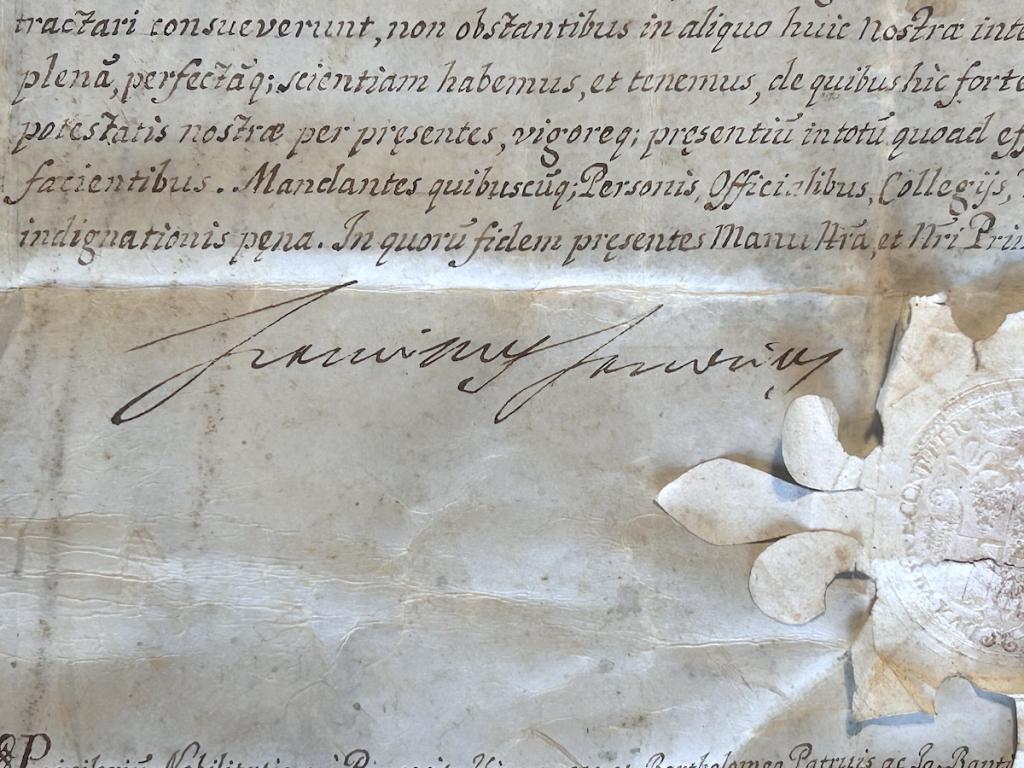 tractari consueverunt, non obstantibus in aliquo huic Nostræ inte
plenā, perfectāq; scientiam habemus, et tenemus, de quibus hic forte
potestatis nostræ per pręsentes, vigoreq; pręsentiū in totū quoad eff
facientibus. Mandantes quibuscūq; Personis, Officialibus, Collegijs,
indignationis pęna. In quorū fidem pręsentes Manu Nrā, et Nri Prin
Privilegiū Nobilitatis Bartholomęo Patruis ac